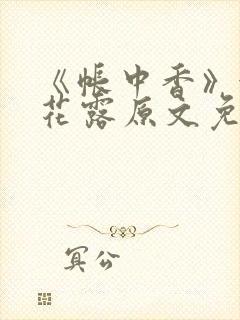 《帐中香》
花露原文免
冥公